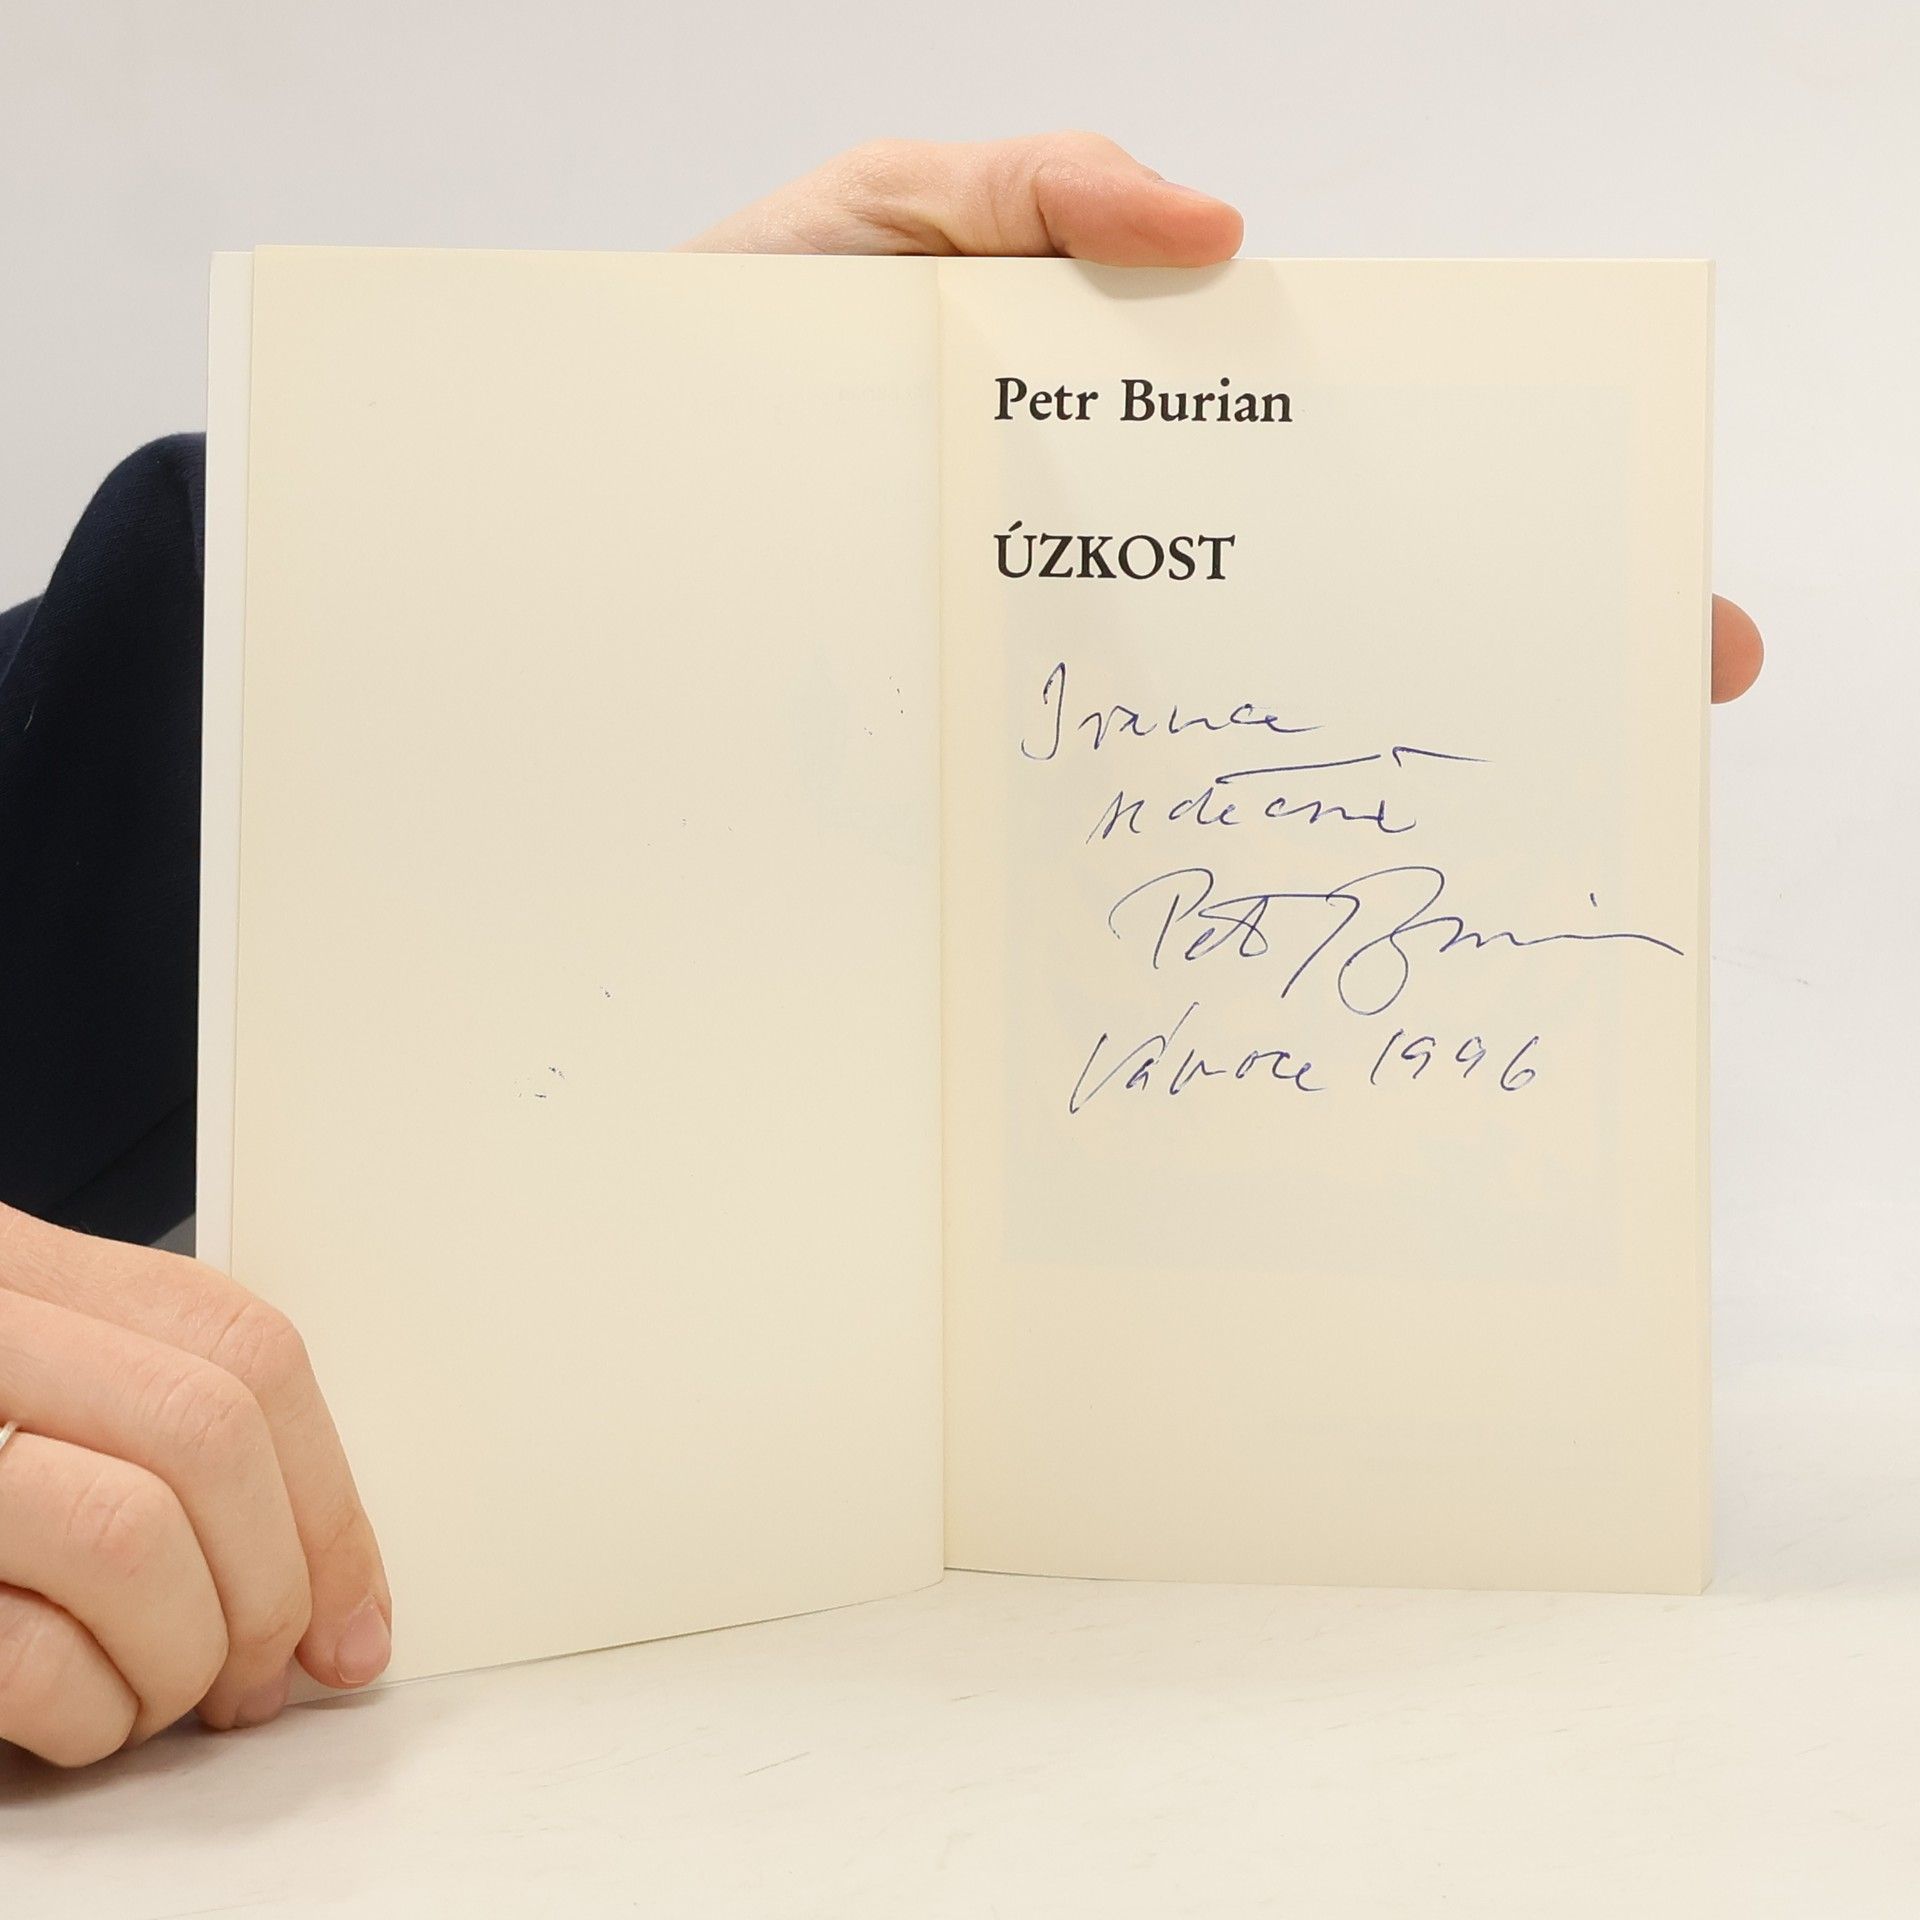 Petr Burian
ÚZKOST
Ivance
srdečně
Petr Burian
Vánoce 1996